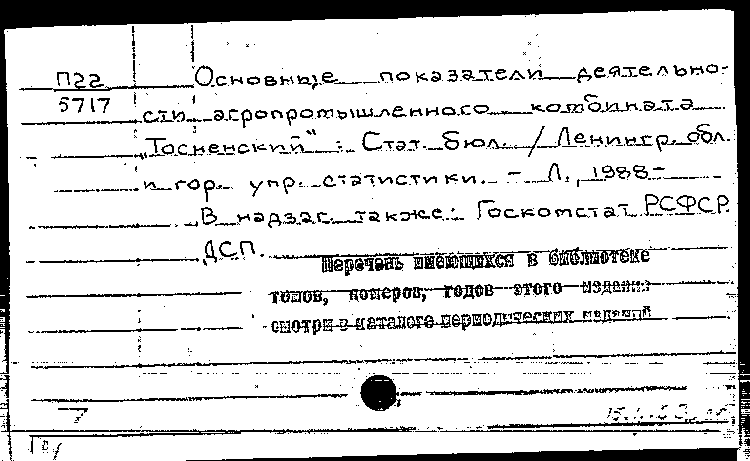 П22 Основные показатели деятельно-
5717 сти агропромышленного комбината
„Тосненский“ : Стат. бюл. / Ленингр. обл.
и гор. упр. статистики. - Л., 1988-
В надзаг. также: Госкомстат РСФСР
ДСП.
Перечень имеющихся в библиотеке
томов, номеров, годов этого издания
смотри в каталоге периодических изданий